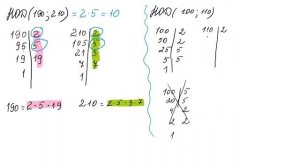 НОД(190;210) = 2·5 = 10
190 | 2
95 | 5
19 | 19
1
210 | 2
105 | 5
21 | 3
7 | 7
1
190 = 2·5·19
210 = 2·5·3·7
НОД(100;110)
100 | 2
50 | 2
25 | 5
5 | 5
1
110 | 2
100 | 5
20 | 5
4 | 2
2 | 2
1